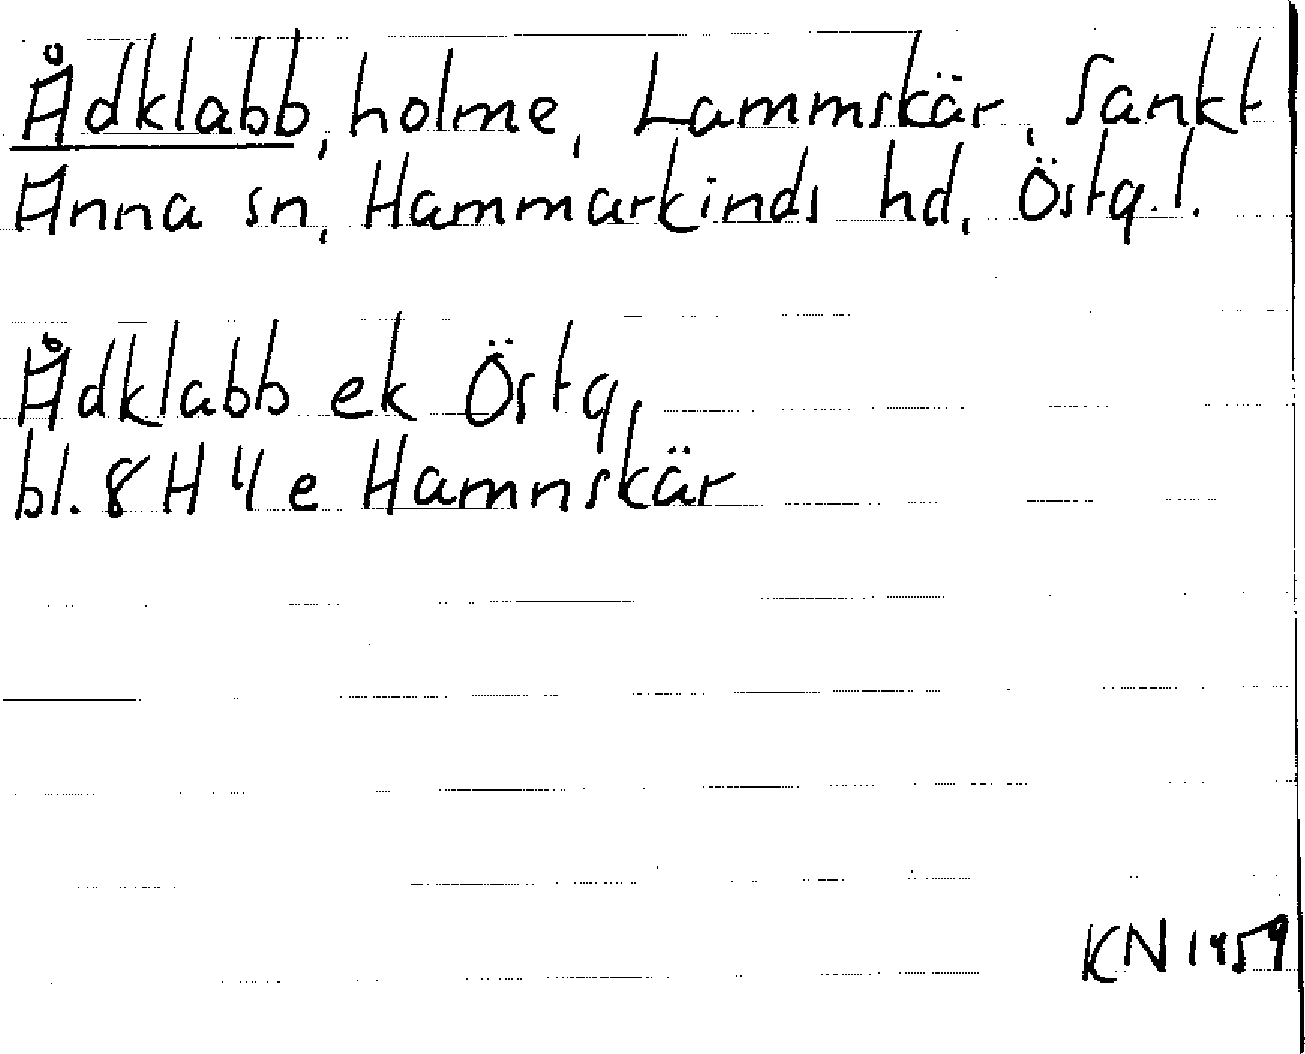 Ådklabb, holme, Lammskär, Sankt
Anna sn, Hammarkinds hd, Östg.l.
Ådklabb ek Östg,
bl. 8 H 4 e Hamnskär
KN 1959